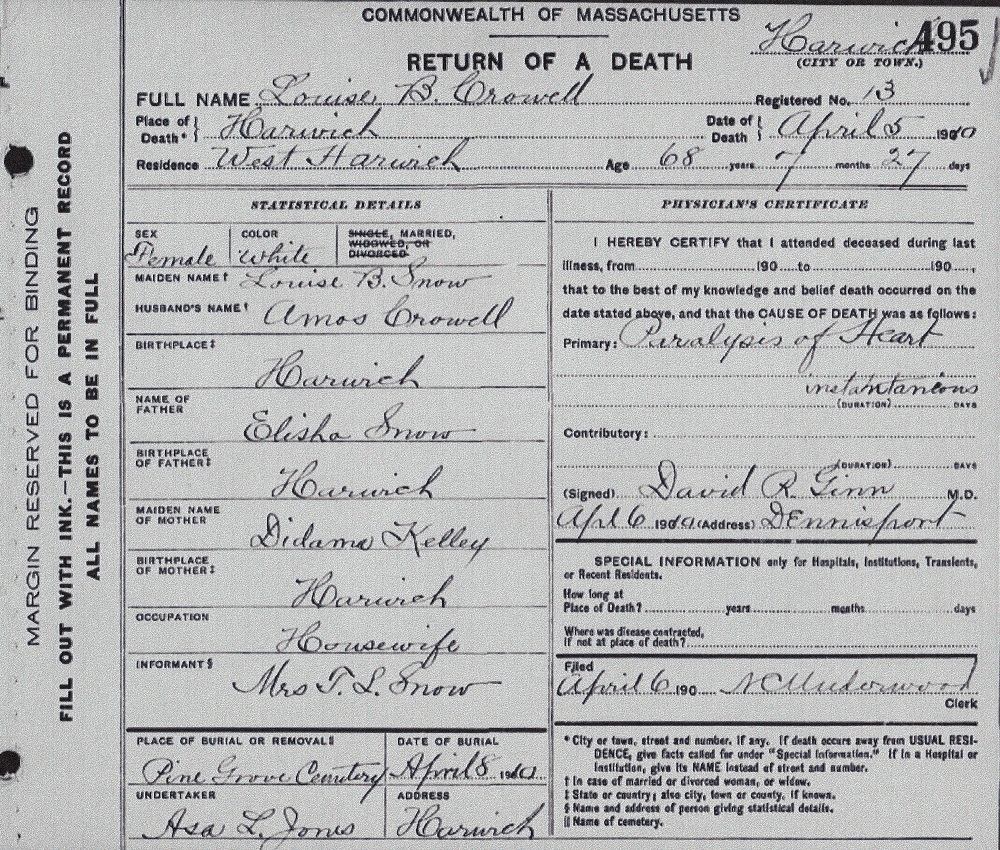 COMMONWEALTH OF MASSACHUSETTS
Harwich 495
(CITY OR TOWN.)
RETURN OF A DEATH
FULL NAME Louise B. Crowell Registered No. 13
Place of Death* } Harwich Date of Death } April 5 1910
Residence West Harwich Age 68 years 7 months 27 days
MARGIN RESERVED FOR BINDING
FILL OUT WITH INK.—THIS IS A PERMANENT RECORD
ALL NAMES TO BE IN FULL
STATISTICAL DETAILS
SEX Female
COLOR White
SINGLE, MARRIED,
WIDOWED, OR
DIVORCED
MAIDEN NAME† Louise B. Snow
HUSBAND'S NAME† Amos Crowell
BIRTHPLACE‡
Harwich
NAME OF
FATHER
Elisha Snow
BIRTHPLACE
OF FATHER‡
Harwich
MAIDEN NAME
OF MOTHER
Didama Kelley
BIRTHPLACE
OF MOTHER‡
Harwich
OCCUPATION
Housewife
INFORMANT§
Mrs T. L. Snow
PLACE OF BURIAL OR REMOVAL‖
Pine Grove Cemetery
DATE OF BURIAL
April 8. 1910
UNDERTAKER
Asa L. Jones
ADDRESS
Harwich
PHYSICIAN'S CERTIFICATE
I HEREBY CERTIFY that I attended deceased during last
illness, from 190 to 190 ,
that to the best of my knowledge and belief death occurred on the
date stated above, and that the CAUSE OF DEATH was as follows:
Primary: Paralysis of Heart
instantaneous
(DURATION) DAYS
Contributory:
(DURATION) DAYS
(Signed) David R. Ginn M.D.
Apl 6 1910 (Address) Dennisport
SPECIAL INFORMATION only for Hospitals, Institutions, Transients,
or Recent Residents.
How long at
Place of Death? years months days
Where was disease contracted,
if not at place of death?
Filed
April 6 190 N C Underwood
Clerk
* City or town, street and number, if any. If death occurs away from USUAL RESI-
DENCE, give facts called for under "Special Information." If in a Hospital or
Institution, give its NAME instead of street and number.
† In case of married or divorced woman, or widow.
‡ State or country; also city, town or county, if known.
§ Name and address of person giving statistical details.
‖ Name of cemetery.